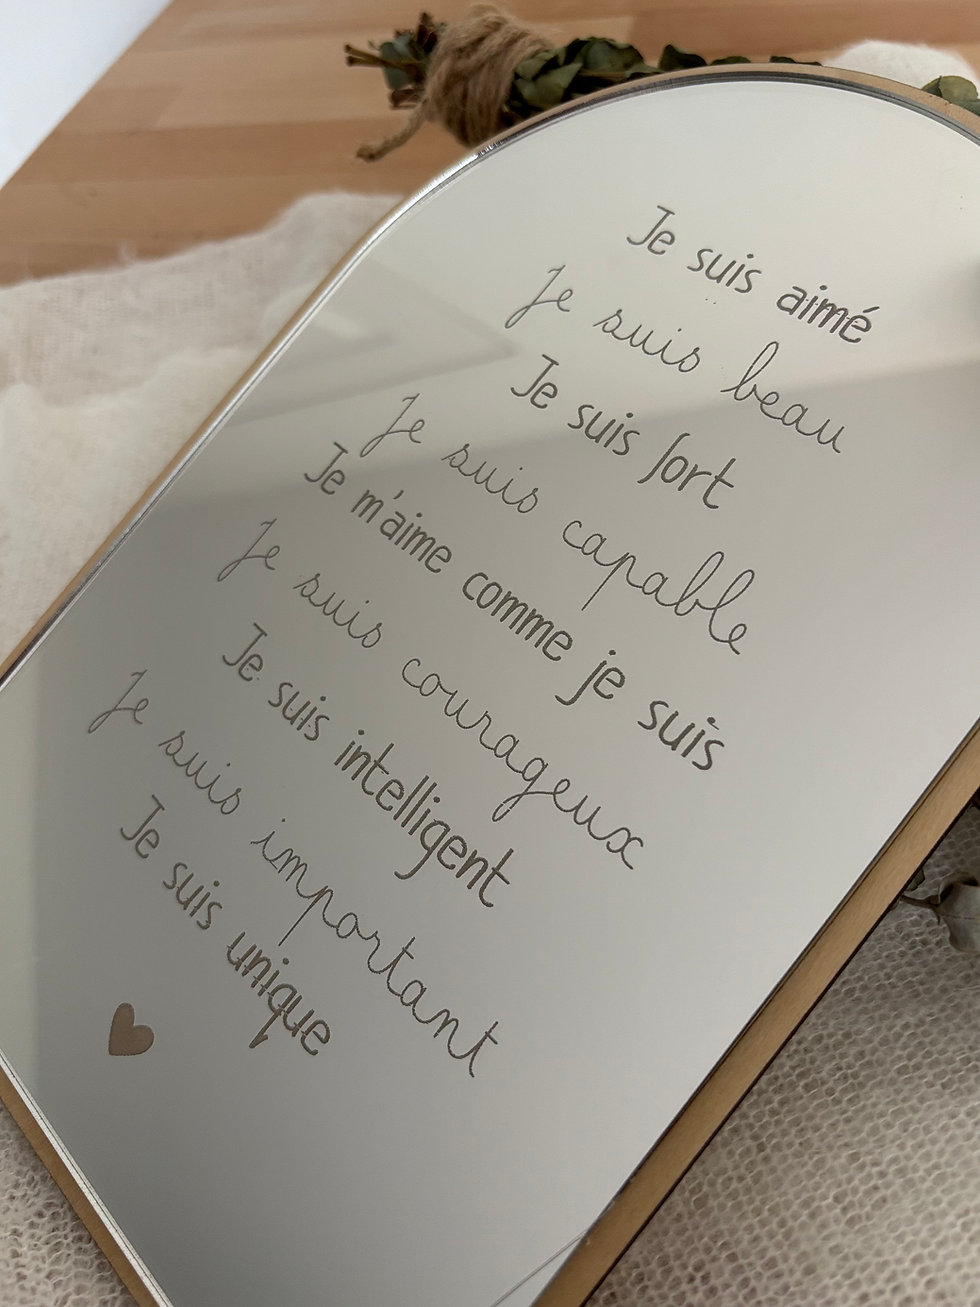 Je suis aimé
Je suis beau
Je suis fort
Je suis capable
Je m'aime comme je suis
Je suis courageux
Je suis intelligent
Je suis important
Je suis unique